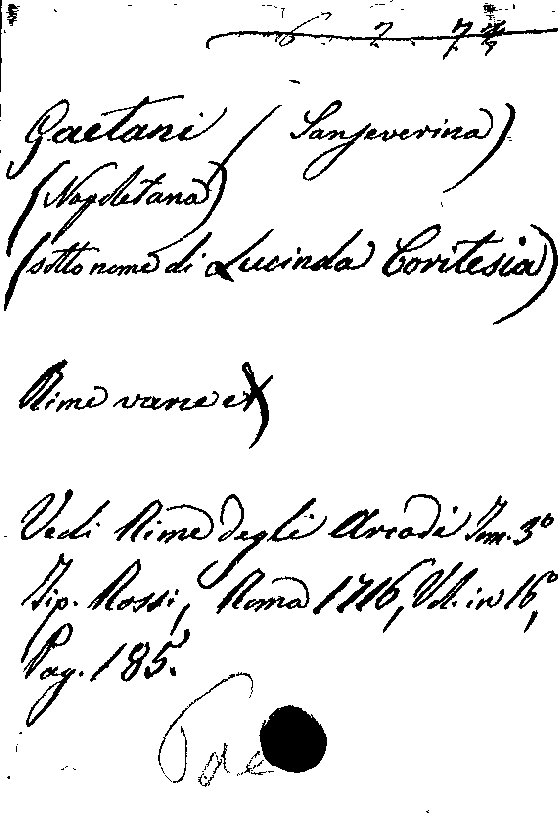 6 2 74
Gaetani (Sanseverina)
(Napoletana)
(sotto nome di Lucinda Coritesia)
Rime varie
Vedi Rime degli Arcadi Tom. 3º
Tip. Rossi, Roma 1716, Vol. in 16º,
Pag. 185.